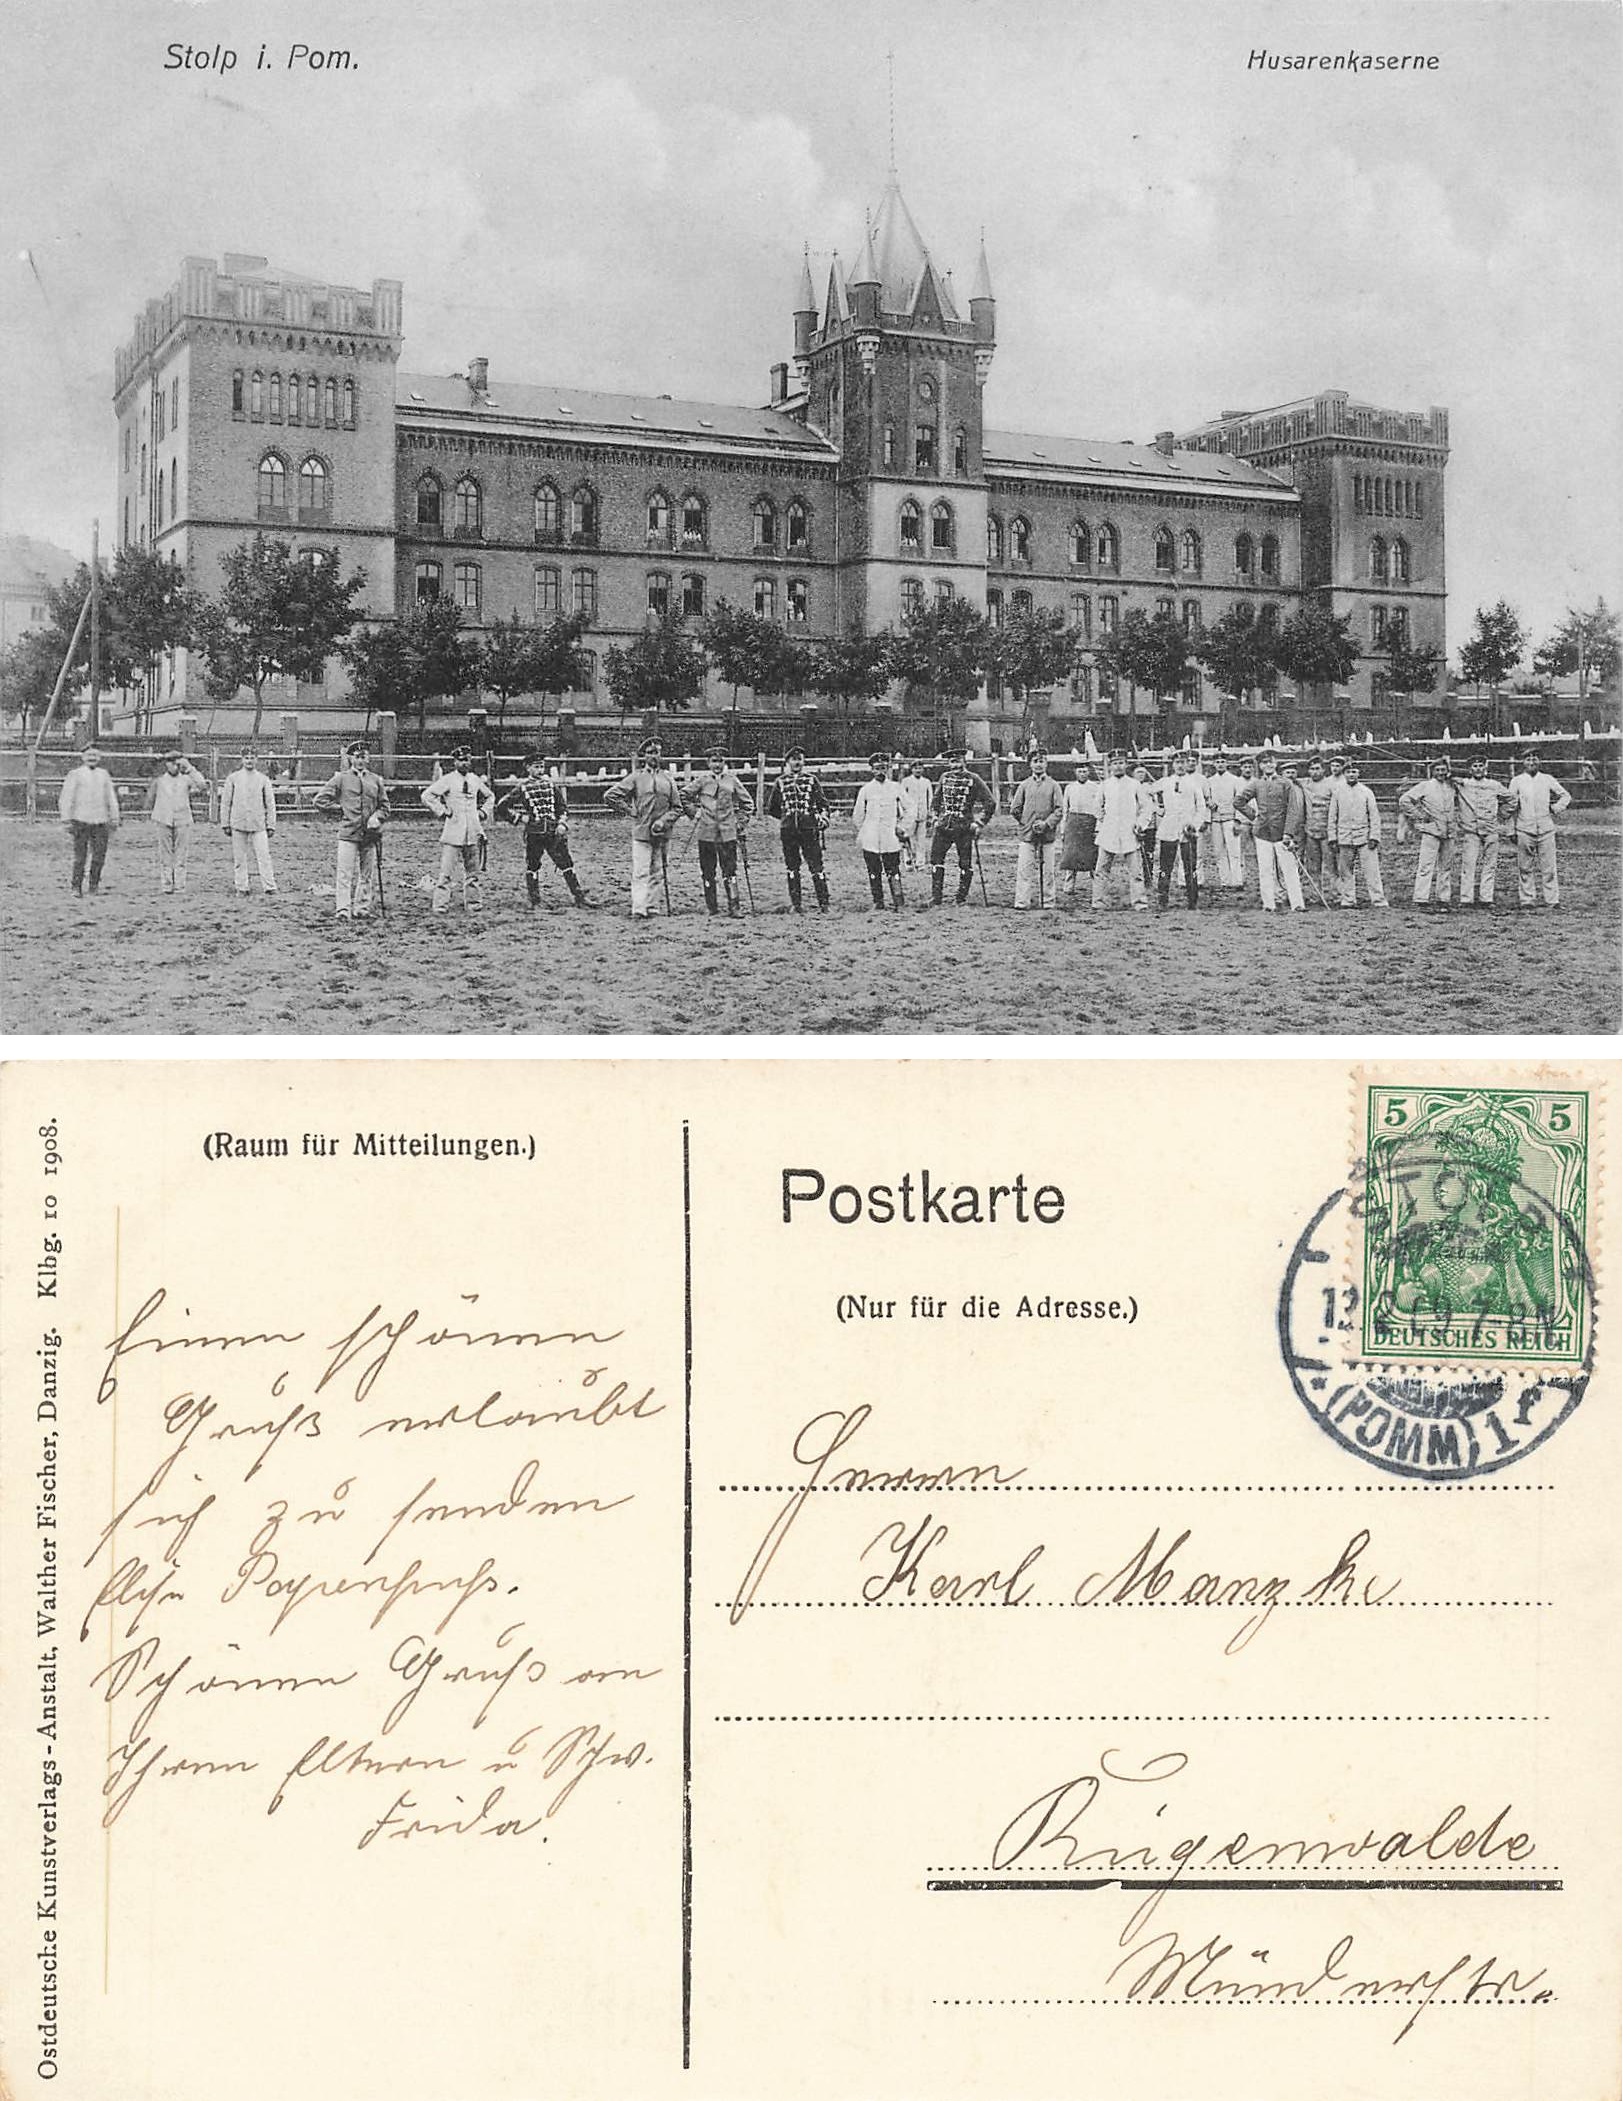 Stolp i. Pom.
Husarenkaserne
Ostdeutsche Kunstverlags-Anstalt, Walther Fischer, Danzig. Klbg. 10 1908.
(Raum für Mitteilungen.)
Einen schönen
Gruß erlaubt
sich zu senden
Elise Papenfuß.
Schönen Gruß an
Ihren Eltern u Schw.
Frida.
Postkarte
(Nur für die Adresse.)
5 5
DEUTSCHES REICH
STOLP
12.2.09.7-8N.
(POMM) 1f
Herrn
Karl Manzke
Rügenwalde
Münderstr.